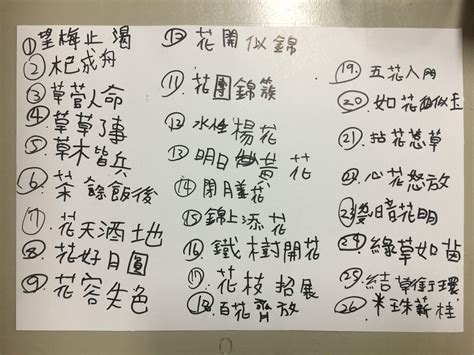 ①望梅止渴
②木已成舟
③草菅人命
④草草了事
⑤草木皆兵
⑥茶餘飯後
⑦花天酒地
⑧花好月圓
⑨花容失色
⑩花開似錦
⑪花團錦簇
⑫水性楊花
⑬明日黃花
⑭閉月羞花
⑮錦上添花
⑯鐵樹開花
⑰花枝招展
⑱百花齊放
⑲五花八門
⑳如花似玉
㉑拈花惹草
㉒心花怒放
㉓柳暗花明
㉔綠草如茵
㉕結草銜環
㉖米珠薪桂